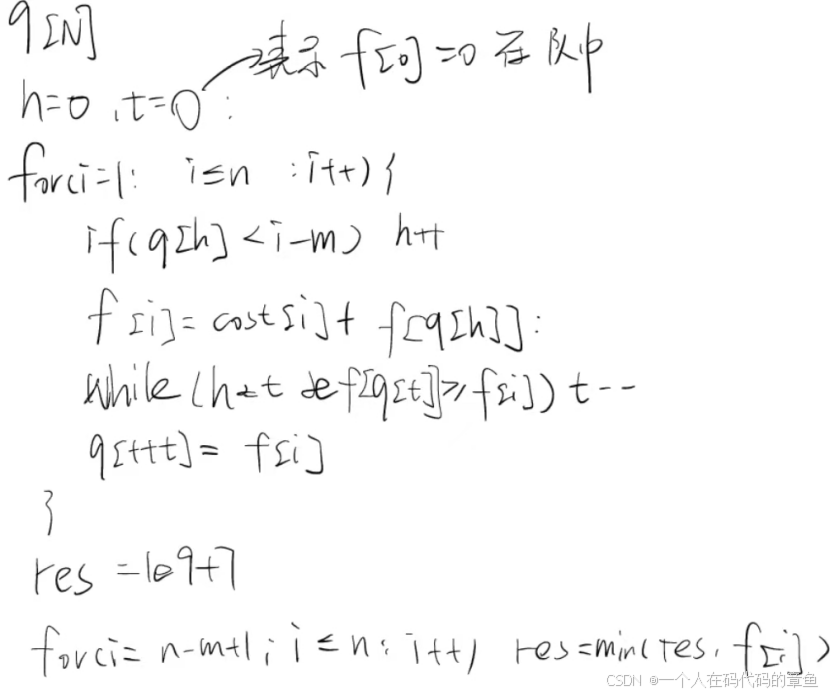 q[N]
表示 f[0]=0 在队中
h=0, t=0;
for(i=1; i≤n ; i++) {
if(q[h] < i-m) h++
f[i]= cost[i]+ f[q[h]];
while(h≤t && f[q[t]]≥f[i]) t--
q[++t]= f[i]
}
res =1e9+7
for(i= n-m+1; i≤n; i++) res=min(res, f[i])
CSDN @一个人在码代码的章鱼